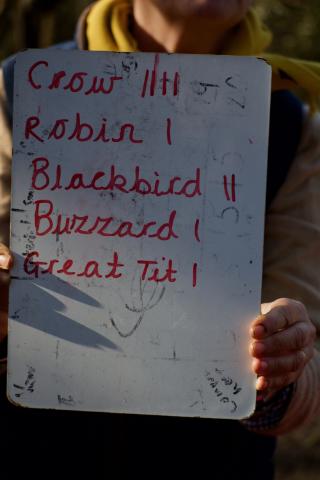 Crow ||||
Robin |
Blackbird ||
Buzzard |
Great Tit |